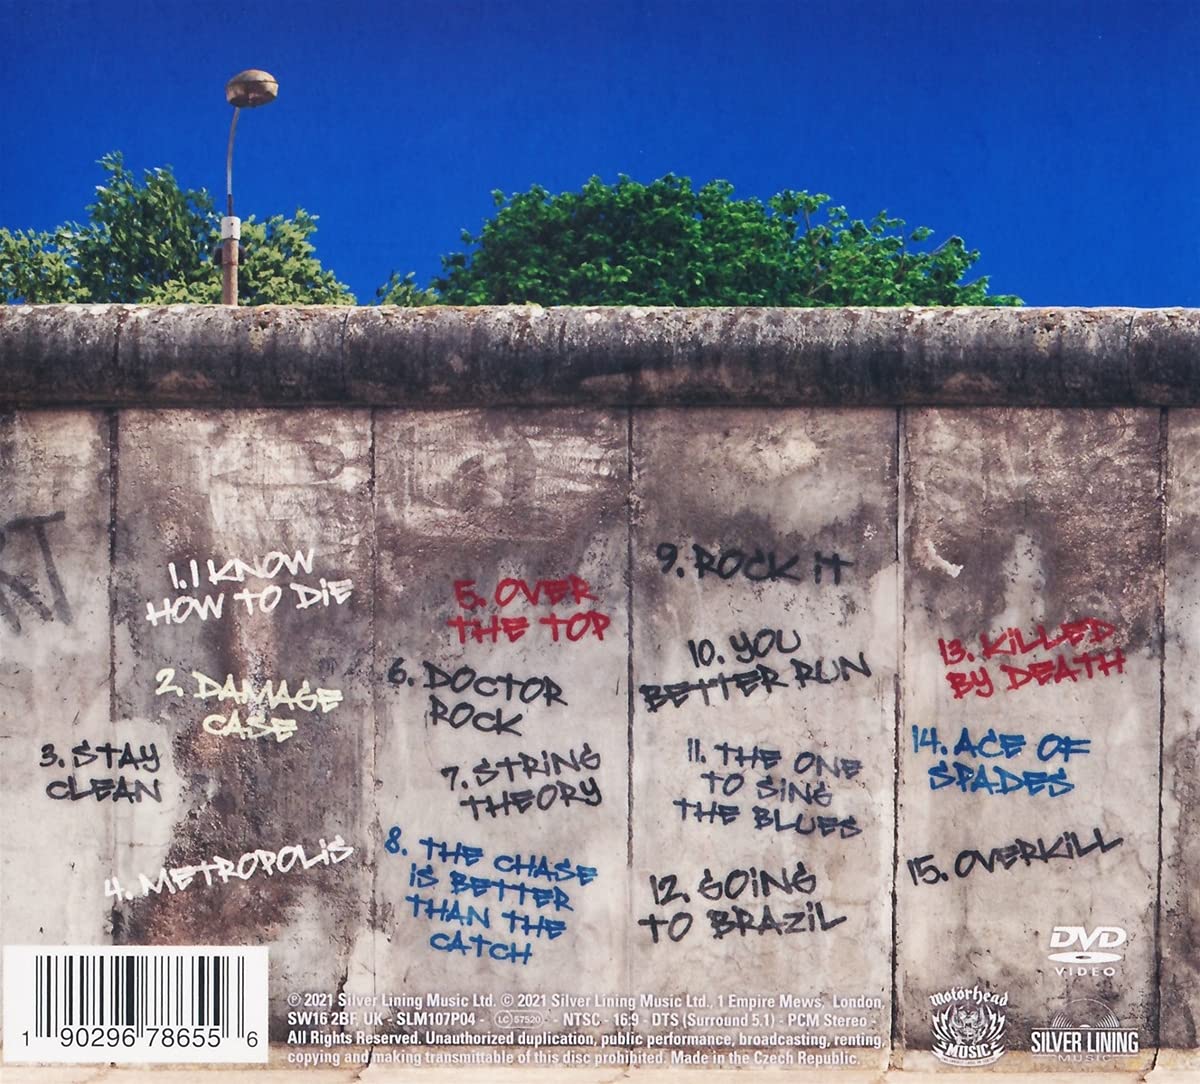 1. I KNOW
HOW TO DiE
2. DAMAGE
CASE
3. STAY
CLEAN
4. METROPOLiS
5. OVER
THE TOP
6. DOCTOR
ROCK
7. STRING
THEORY
8. THE CHASE
iS BETTER
THAN THE
CATCH
9. ROCK iT
10. YOU
BETTER RUN
11. THE ONE
TO SiNG
THE BLUES
12. GOiNG
TO BRAZiL
13. KiLLED
BY DEATH
14. ACE OF
SPADES
15. OVERKiLL
DVD
VIDEO
1 90296 78655 6
℗ 2021 Silver Lining Music Ltd. © 2021 Silver Lining Music Ltd. 1 Empire Mews. London,
SW16 2BF, UK - SLM107P04 - LC 57520 - NTSC - 16:9 - DTS (Surround 5.1) - PCM Stereo -
All Rights Reserved. Unauthorized duplication, public performance, broadcasting, renting,
copying and making transmittable of this disc prohibited. Made in the Czech Republic.
motörhead
MUSIC
SILVER LINING
MUSIC